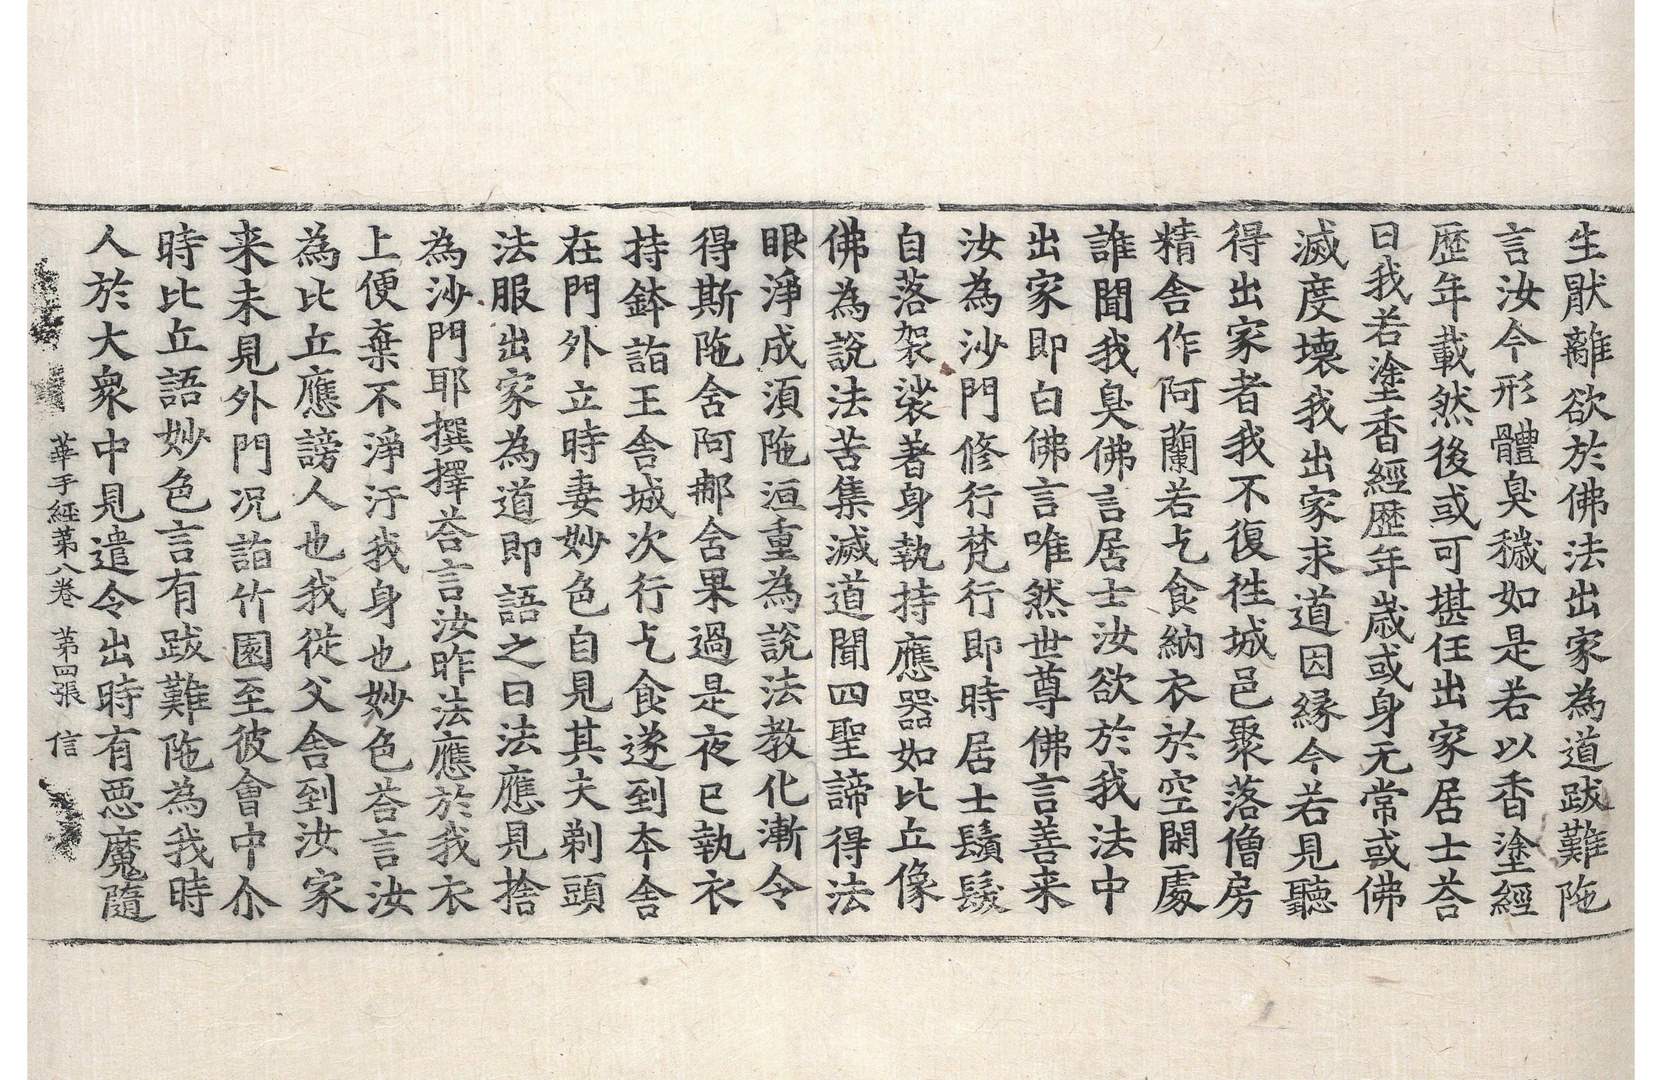 生猒離欲於佛法出家為道跋難陁
言汝今形體臭穢如是若以香塗經
歷年載然後或可堪任出家居士荅
曰我若塗香經歷年歲或身无常或佛
滅度壞我出家求道因緣今若見聽
得出家者我不復徃城邑聚落僧房
精舍作阿蘭若乞食納衣於空閑處
誰聞我臭佛言居士汝欲於我法中
出家即白佛言唯然世尊佛言善来
汝為沙門修行梵行即時居士鬚髮
自落袈裟著身執持應器如比丘像
佛為說法苦集滅道聞四聖諦得法
眼淨成須陁洹重為說法教化漸令
得斯陁舍阿那舍果過是夜已執衣
持鉢詣王舍城次行乞食遂到本舍
在門外立時妻妙色自見其夫剃頭
法服出家為道即語之曰法應見捨
為沙門耶撰擇荅言汝昨法應於我衣
上便棄不淨汙我身也妙色荅言汝
為比丘應謗人也我從父舍到汝家
来未見外門况詣竹園至彼會中尒
時比丘語妙色言有跋難陁為我時
人於大衆中見遣令出時有惡魔隨
華手經第八卷 第四張 信